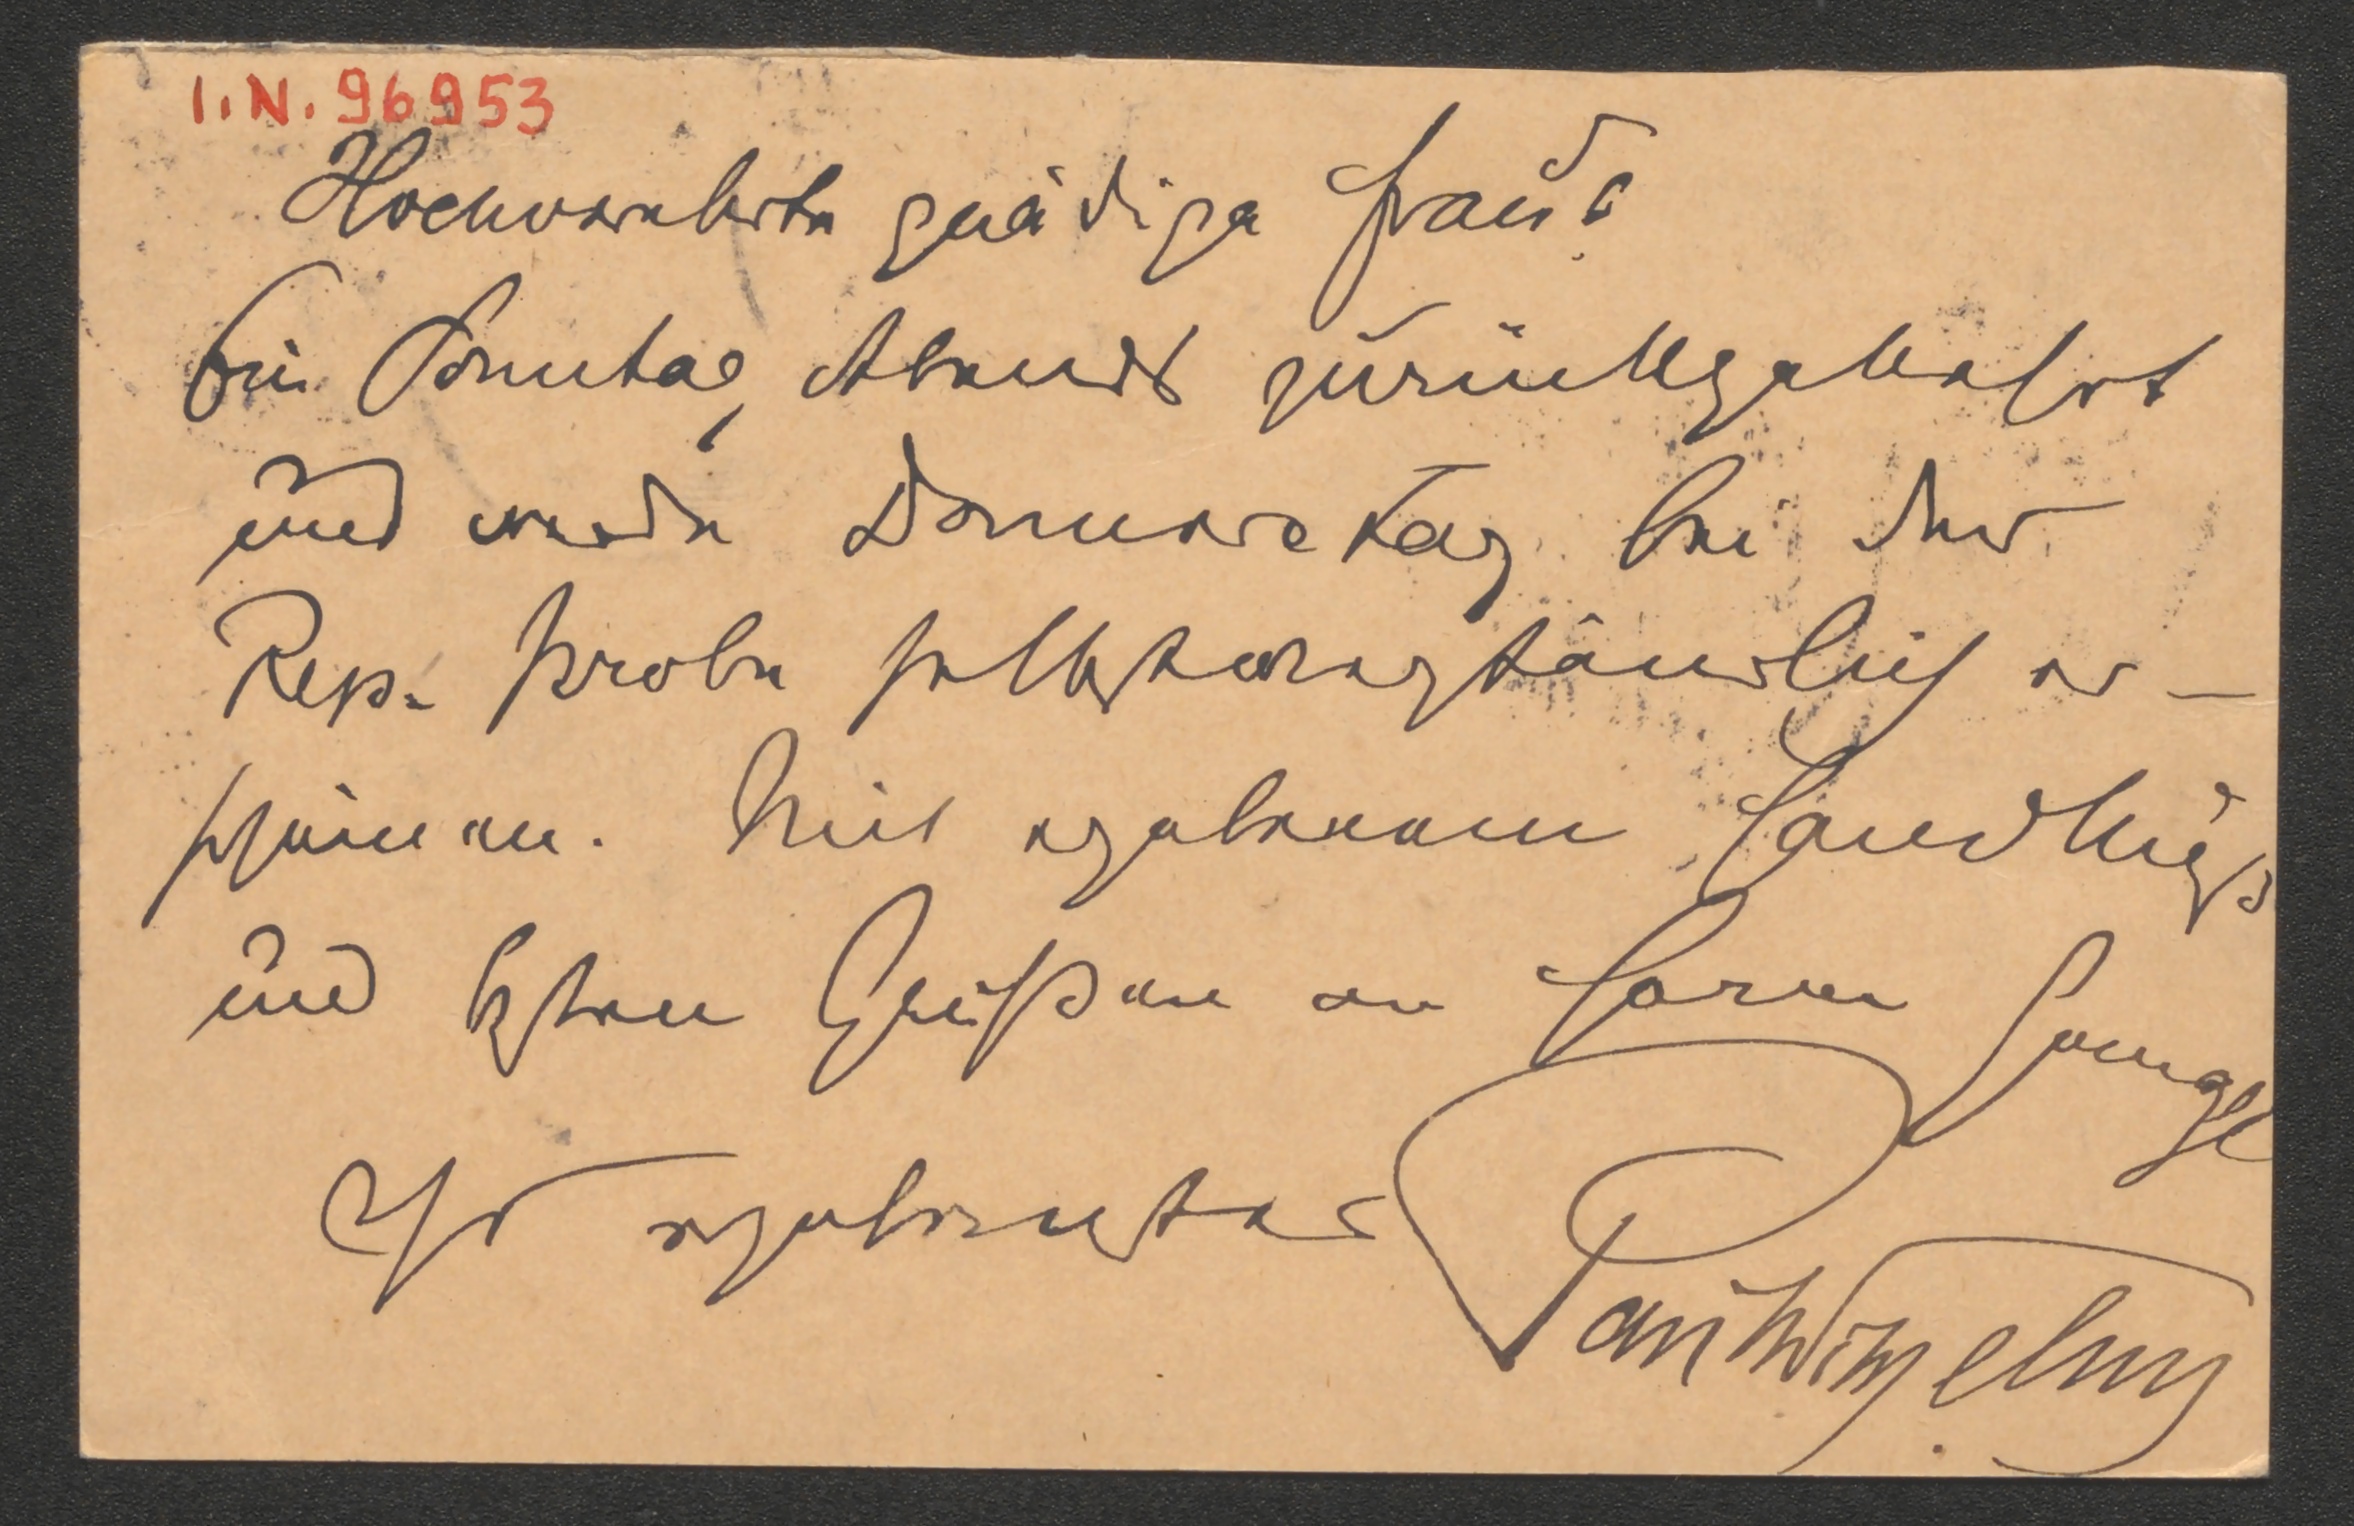 I.N. 96953
Hochverehrte gnädige Frau!
bin Sonntag Abends zurückgekehrt
und werde Donnerstag bei der
Rep. Probe selbstverständlich er-
scheinen. Mit ergebenem Handkuß
und besten Grüßen an Herrn
Ihr ergebenster
Paul Wilhelm